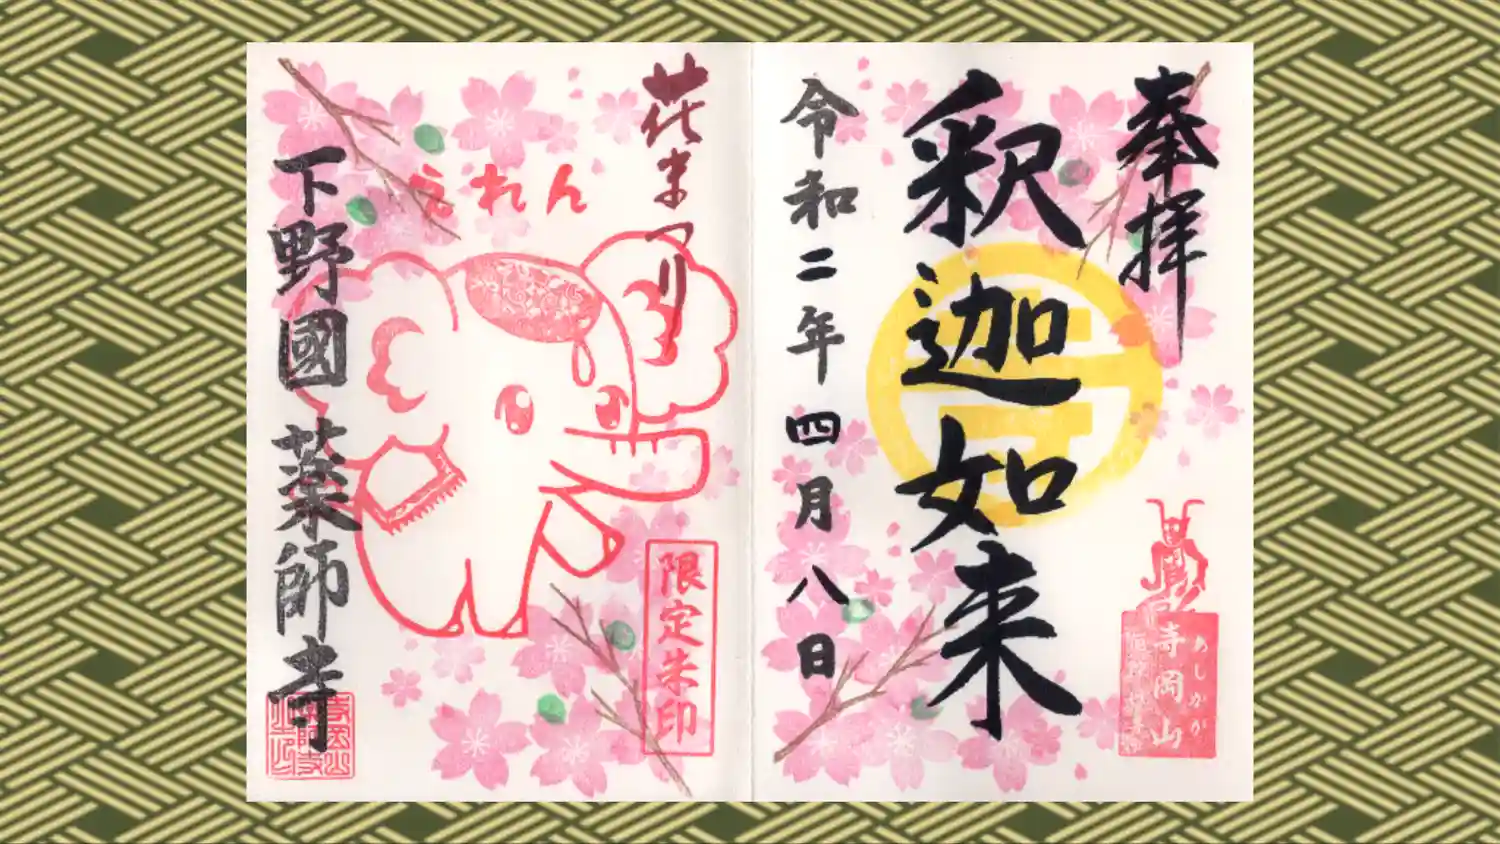 奉拝
釈迦如来
令和二年四月八日
寺岡山
あしかが
花まつり
えれん
限定朱印
下野國薬師寺